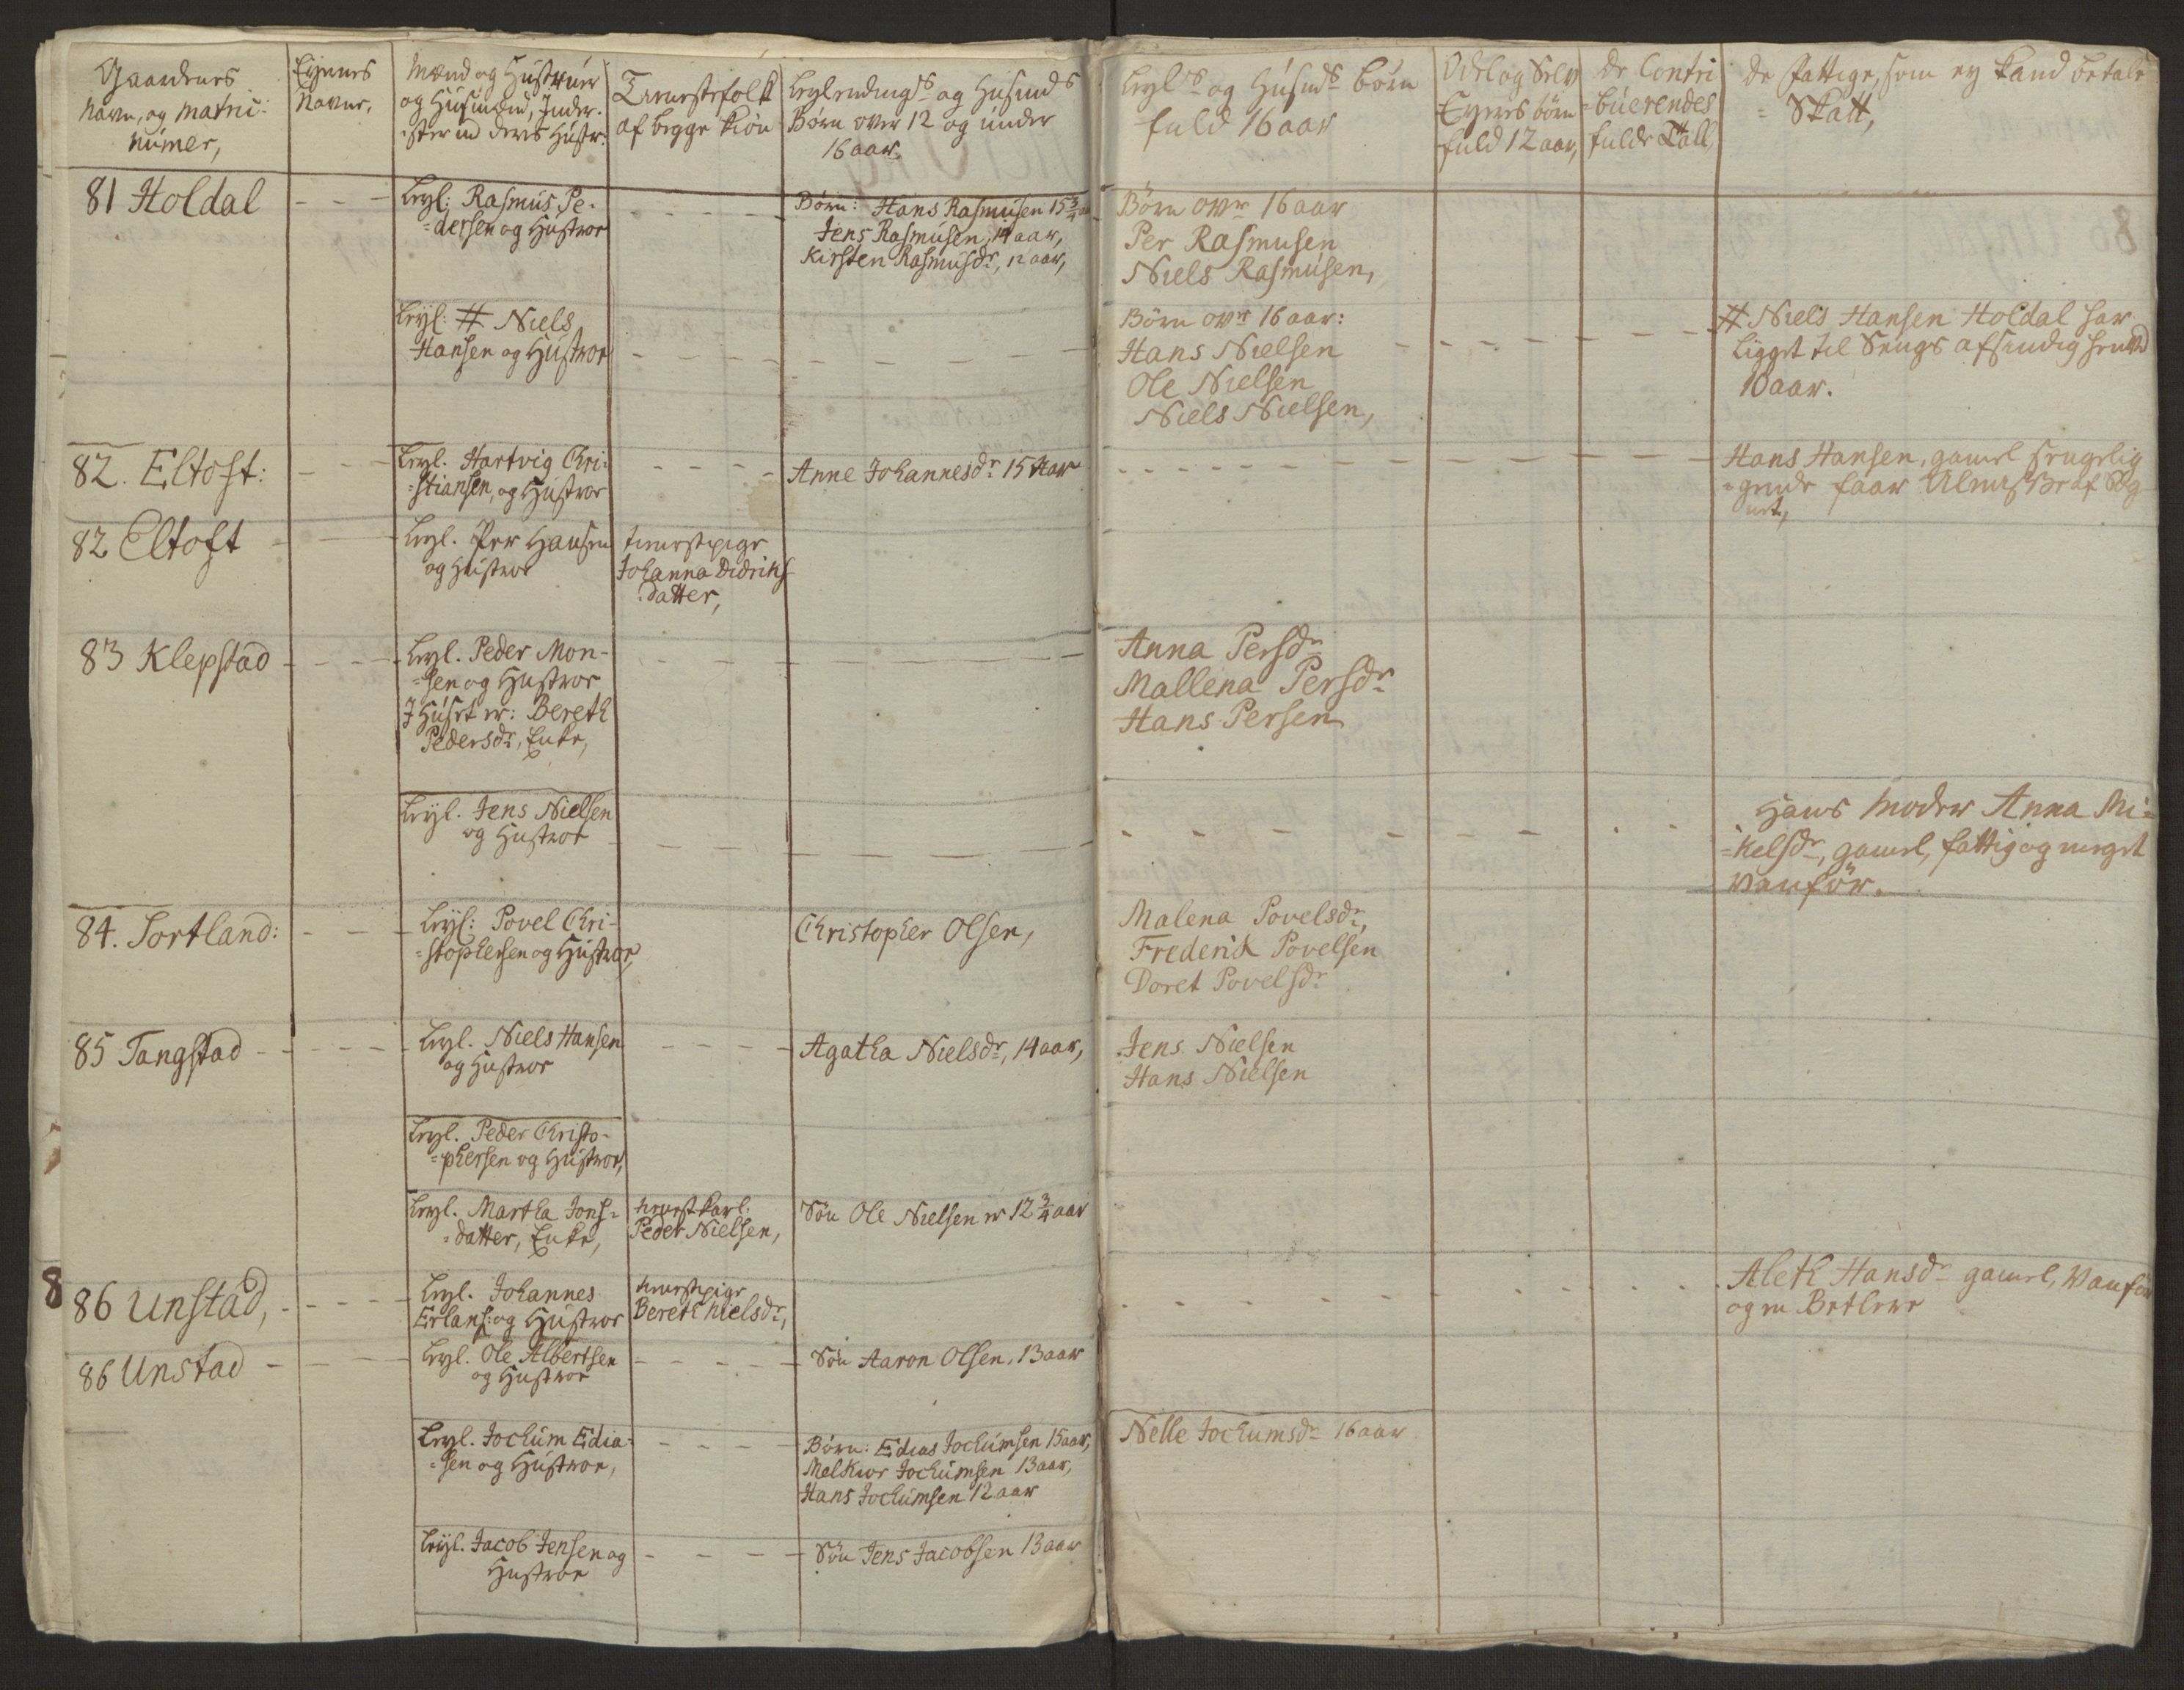 Gaardenes
Navn, og matric:
númer,
Eyernes
Navne,
Mænd og Hustruer
og Húsmænd, Inder-
ster med deres Hustr:
Tienestefolk
af begge kiön
Leylendings og Husmds
Börn over 12 og under
16 aar,
Leyls og Húsmds börn
fuld 16 aar
Odel og Selv
Eyeres börn
fuld 12 aar,
De Contri
=búerendes
fulde Tall,
De fattige, som ey kand betale
= Skatt,
81 Holdal
Leyl: Rasmus Pe-
=dersen og Hústroe
Börn: Hans Rasmusen 15 3/4 aar
Jens Rasmúsen, 14 aar,
Kirsten Rasmusdr, 12 aar,
Börn over 16 aar
Per Rasmusen
Niels Rasmúsen,
Leyl: # Niels
Hansen og Hústroe
Börn over 16 aar:
Hans Nielsen
Ole Nielsen
Niels Nielsen,
# Niels Hansen Holdal har
ligget til Sengs afsindig henved
10 aar.
82. Eltoft:
Leyl. Hartvig Chri-
=stiansen, og Hústroe
Anne Johannesdr 15 aar
Hans Hansen, gamel sengelig
=gende faar Almisse af Sog
net,
82 Eltoft
Leyl. Per Hansen
og Hústroe
tienestepige
Johanna Didriks
datter,
83 Klepstad
Leyl. Peder Mon-
=sen og Hustroe
J Húset er: Bereth
Pedersdr, Enke,
Anna Persdr
Mallena Persdr
Hans Persen
Leyl. Jens Nielsen
og Hustroe
Hans Moder Anna Mi-
=kelsdr, gamel, fattig og meget
vanför.
84. Sortland:
Leyl: Povel Chri-
=stophersen og Hústroe,
Christopher Olsen,
Malena Povelsdr,
Frederik Povelsen
Doret Povelsdr
85 Tangstad
Leyl. Niels Hansen
og Hustroe
Agatha Nielsdr, 14 aar,
Jens Nielsen
Hans Nielsen
Leyl. Peder Christo-
=phersen og Hústroe,
Leyl. Martha Jons-
=datter, Enke,
tienestkarl:
Peder Nielsen,
Sön Ole Nielsen er 12 3/4 aar
86 Unstad,
Leyl. Johannes
Erlans: og Hústroe
tienestpige
Bereth Nielsdr,
Aleth Hansdr gamel, vanför
og en Betlere
86 Unstad
Leyl. Ole Albertsen
og Hustroe
Sön Aaron Olsen, 13 aar
Leyl. Jochúm Edia-
=sen og Hústroe,
Börn: Edias Jochúmsen 15 aar,
Melkior Jochúmsen 13 aar,
Hans Jochúmsen 12 aar
Nelle Jochumsdr 16 aar
Leyl. Jacob Jensen og
Hustroe
Sön Jens Jacobsen 13 aar